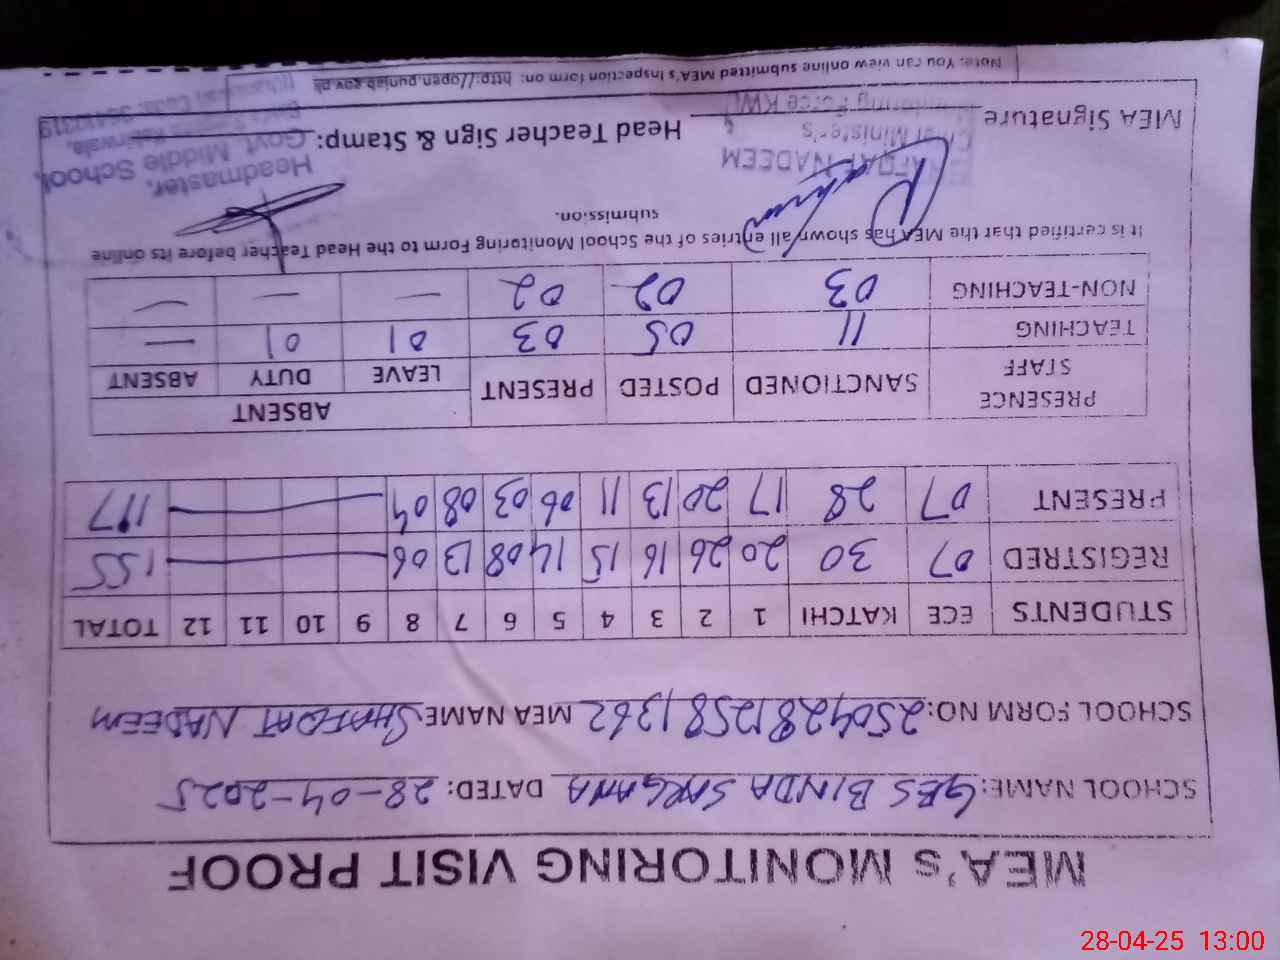 MEA's MONITORING VISIT PROOF
SCHOOL NAME: GES BINDA SARGANA DATED: 28-04-2025
SCHOOL FORM NO: 25042812581362 MEA NAME SHAFQAT NADEEM
STUDENTS ECE KATCHI 1 2 3 4 5 6 7 8 9 10 11 12 TOTAL
REGISTRED 07 30 20 26 16 15 14 08 13 06 155
PRESENT 07 28 17 20 13 11 06 03 08 04 117
PRESENCE STAFF SANCTIONED POSTED PRESENT ABSENT
LEAVE DUTY ABSENT
TEACHING 11 05 03 01 01 —
NON-TEACHING 03 02 02 — — —
It is certified that the MEA has shown all entries of the School Monitoring Form to the Head Teacher before its online
submission.
NADEEM
Minister's
Monitoring Force KWL
MEA Signature
Head Teacher Sign & Stamp:
Headmaster,
Govt. Middle School,
Note: You can view online submitted MEA's Inspection form on: http://open.punjab.gov.pk
28-04-25 13:00